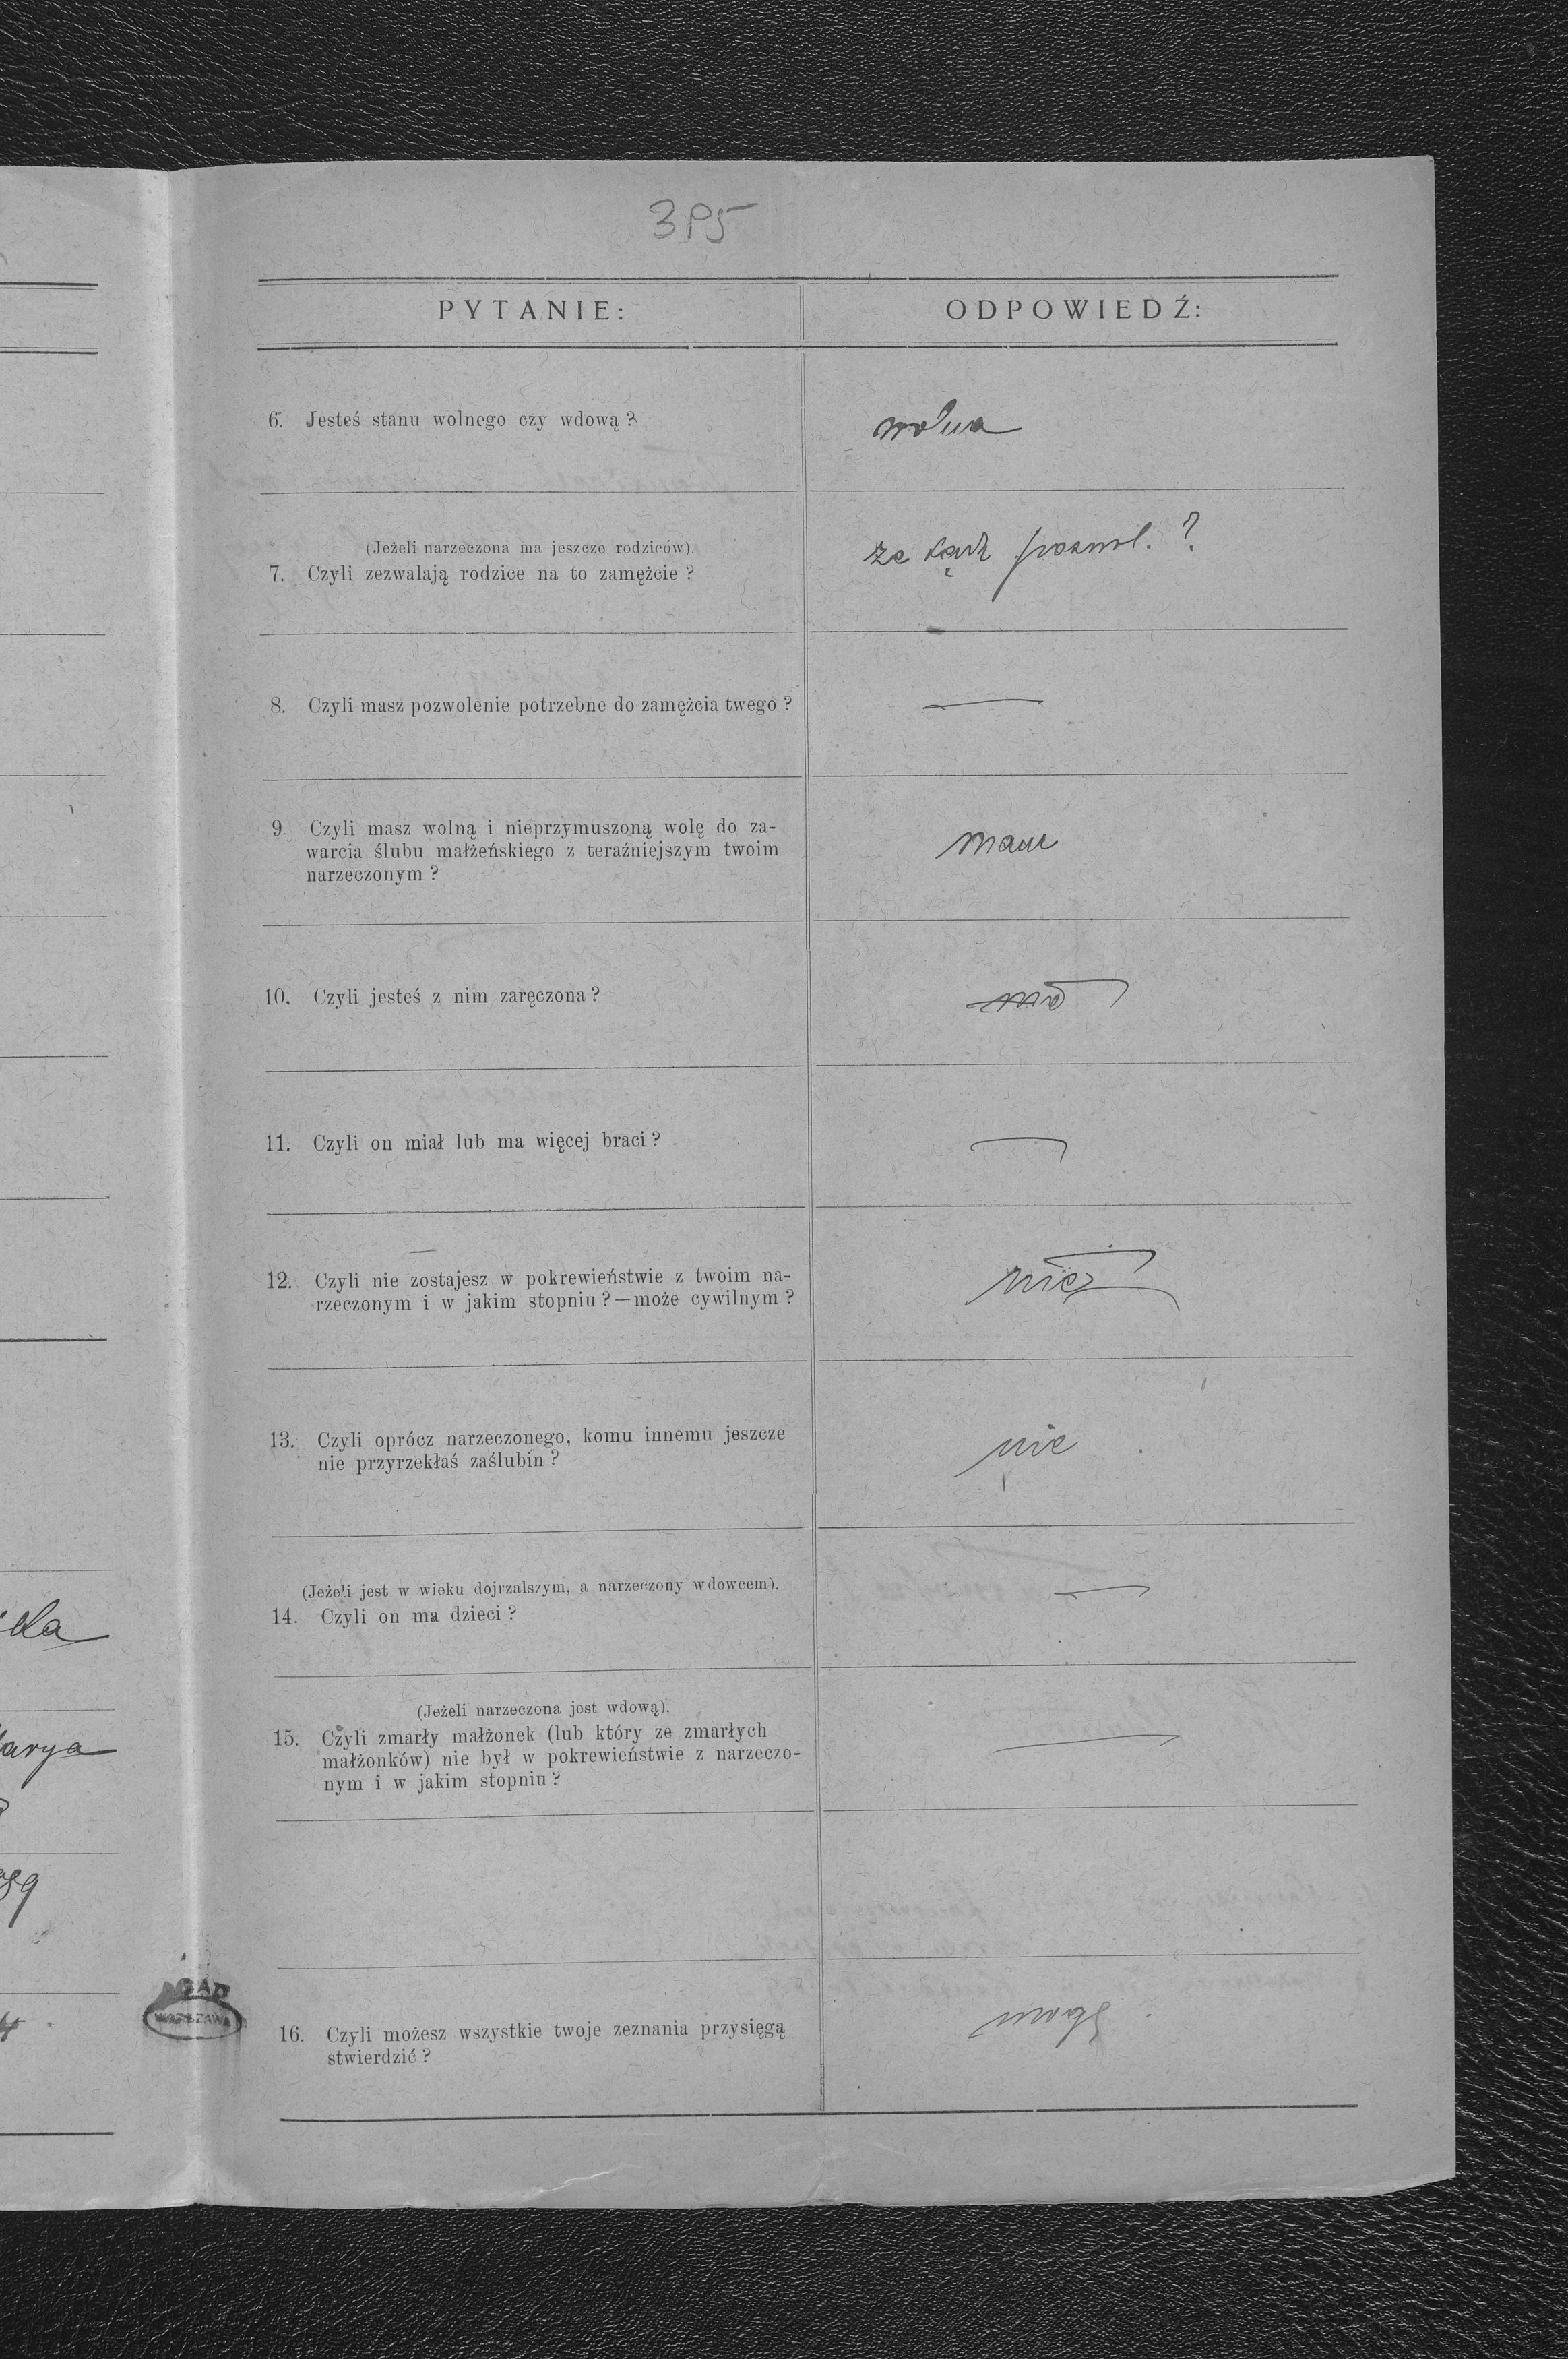 395
PYTANIE:
ODPOWIEDŹ:
6. Jesteś stanu wolnego czy wdową?
wolna
(Jeżeli narzeczona ma jeszcze rodziców).
7. Czyli zezwalają rodzice na to zamężcie?
ze
?
8. Czyli masz pozwolenie potrzebne do zamężcia twego?
—
9. Czyli masz wolną i nieprzymuszoną wolę do za-
warcia ślubu małżeńskiego z teraźniejszym twoim
narzeczonym?
mam
10. Czyli jesteś z nim zaręczona?
11. Czyli on miał lub ma więcej braci?
12. Czyli nie zostajesz w pokrewieństwie z twoim na-
rzeczonym i w jakim stopniu?—może cywilnym?
13. Czyli oprócz narzeczonego, komu innemu jeszcze
nie przyrzekłaś zaślubin?
nie
(Jeżeli jest w wieku dojrzalszym, a narzeczony wdowcem).
14. Czyli on ma dzieci?
—
(Jeżeli narzeczona jest wdową).
15. Czyli zmarły małżonek (lub który ze zmarłych
małżonków) nie był w pokrewieństwie z narzeczo-
nym i w jakim stopniu?
—
16. Czyli możesz wszystkie twoje zeznania przysięgą
stwierdzić?
mogę
arya
AGAD
WARSZAWA